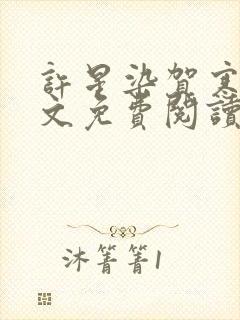 許星染賀寒
文免費閱讀
沐箐箐1